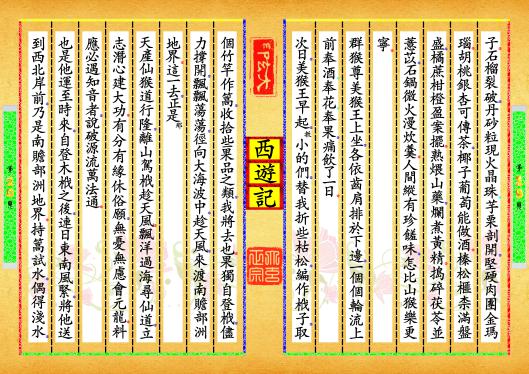 子石榴裂破丹砂粒現火晶珠芋栗剖開堅硬肉團金瑪
瑙胡桃銀杏可傳茶椰子葡萄能做酒榛松榧柰滿盤
盛橘蔗柑橙盈案擺熟煨山藥爛煮黃精搗碎茯苓並
薏苡石鍋微火漫炊羹人間縱有珍饈味怎比山猴樂更
寧
群猴尊美猴王上坐各依齒肩排於下邊一個個輪流上
前奉酒奉花奉果痛飲了一日
次日美猴王早起教小的們替我折些枯松編作栰子取
西遊記
個竹竿作篙收拾些果品之類我將去也果獨自登栰儘
力撐開飄飄蕩蕩徑向大海波中趁天風來渡南贍部洲
地界這一去正是那
天產仙猴道行隆離山駕栰趁天風飄洋過海尋仙道立
志潛心建大功有分有緣休俗願無憂無慮會元龍料
應必遇知音者說破源流萬法通
也是他運至時來自登木栰之後連日東南風緊將他送
到西北岸前乃是南贍部洲地界持篙試水偶得淺水